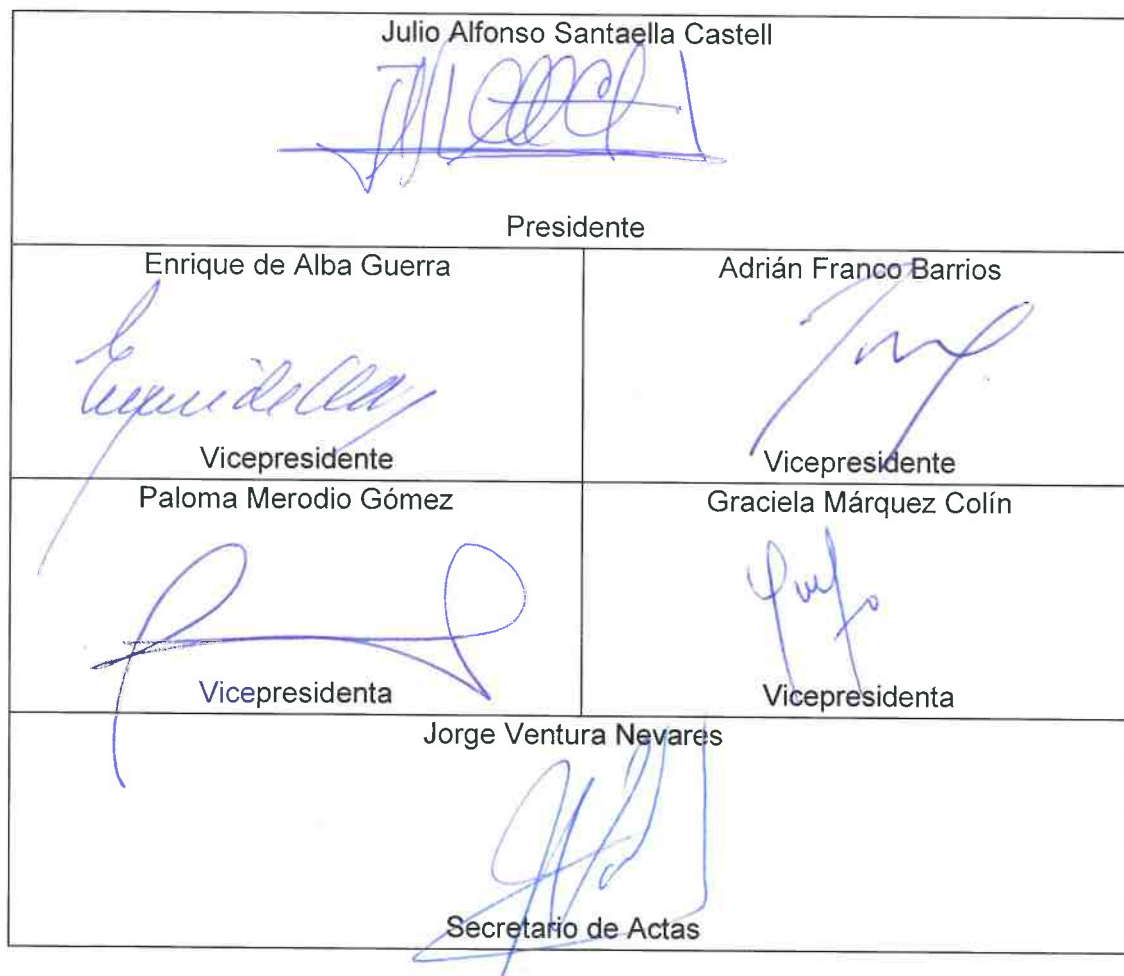 Julio Alfonso Santaella Castell
Presidente
Enrique de Alba Guerra
Vicepresidente
Adrián Franco Barrios
Vicepresidente
Paloma Merodio Gómez
Vicepresidenta
Graciela Márquez Colín
Vicepresidenta
Jorge Ventura Nevares
Secretario de Actas